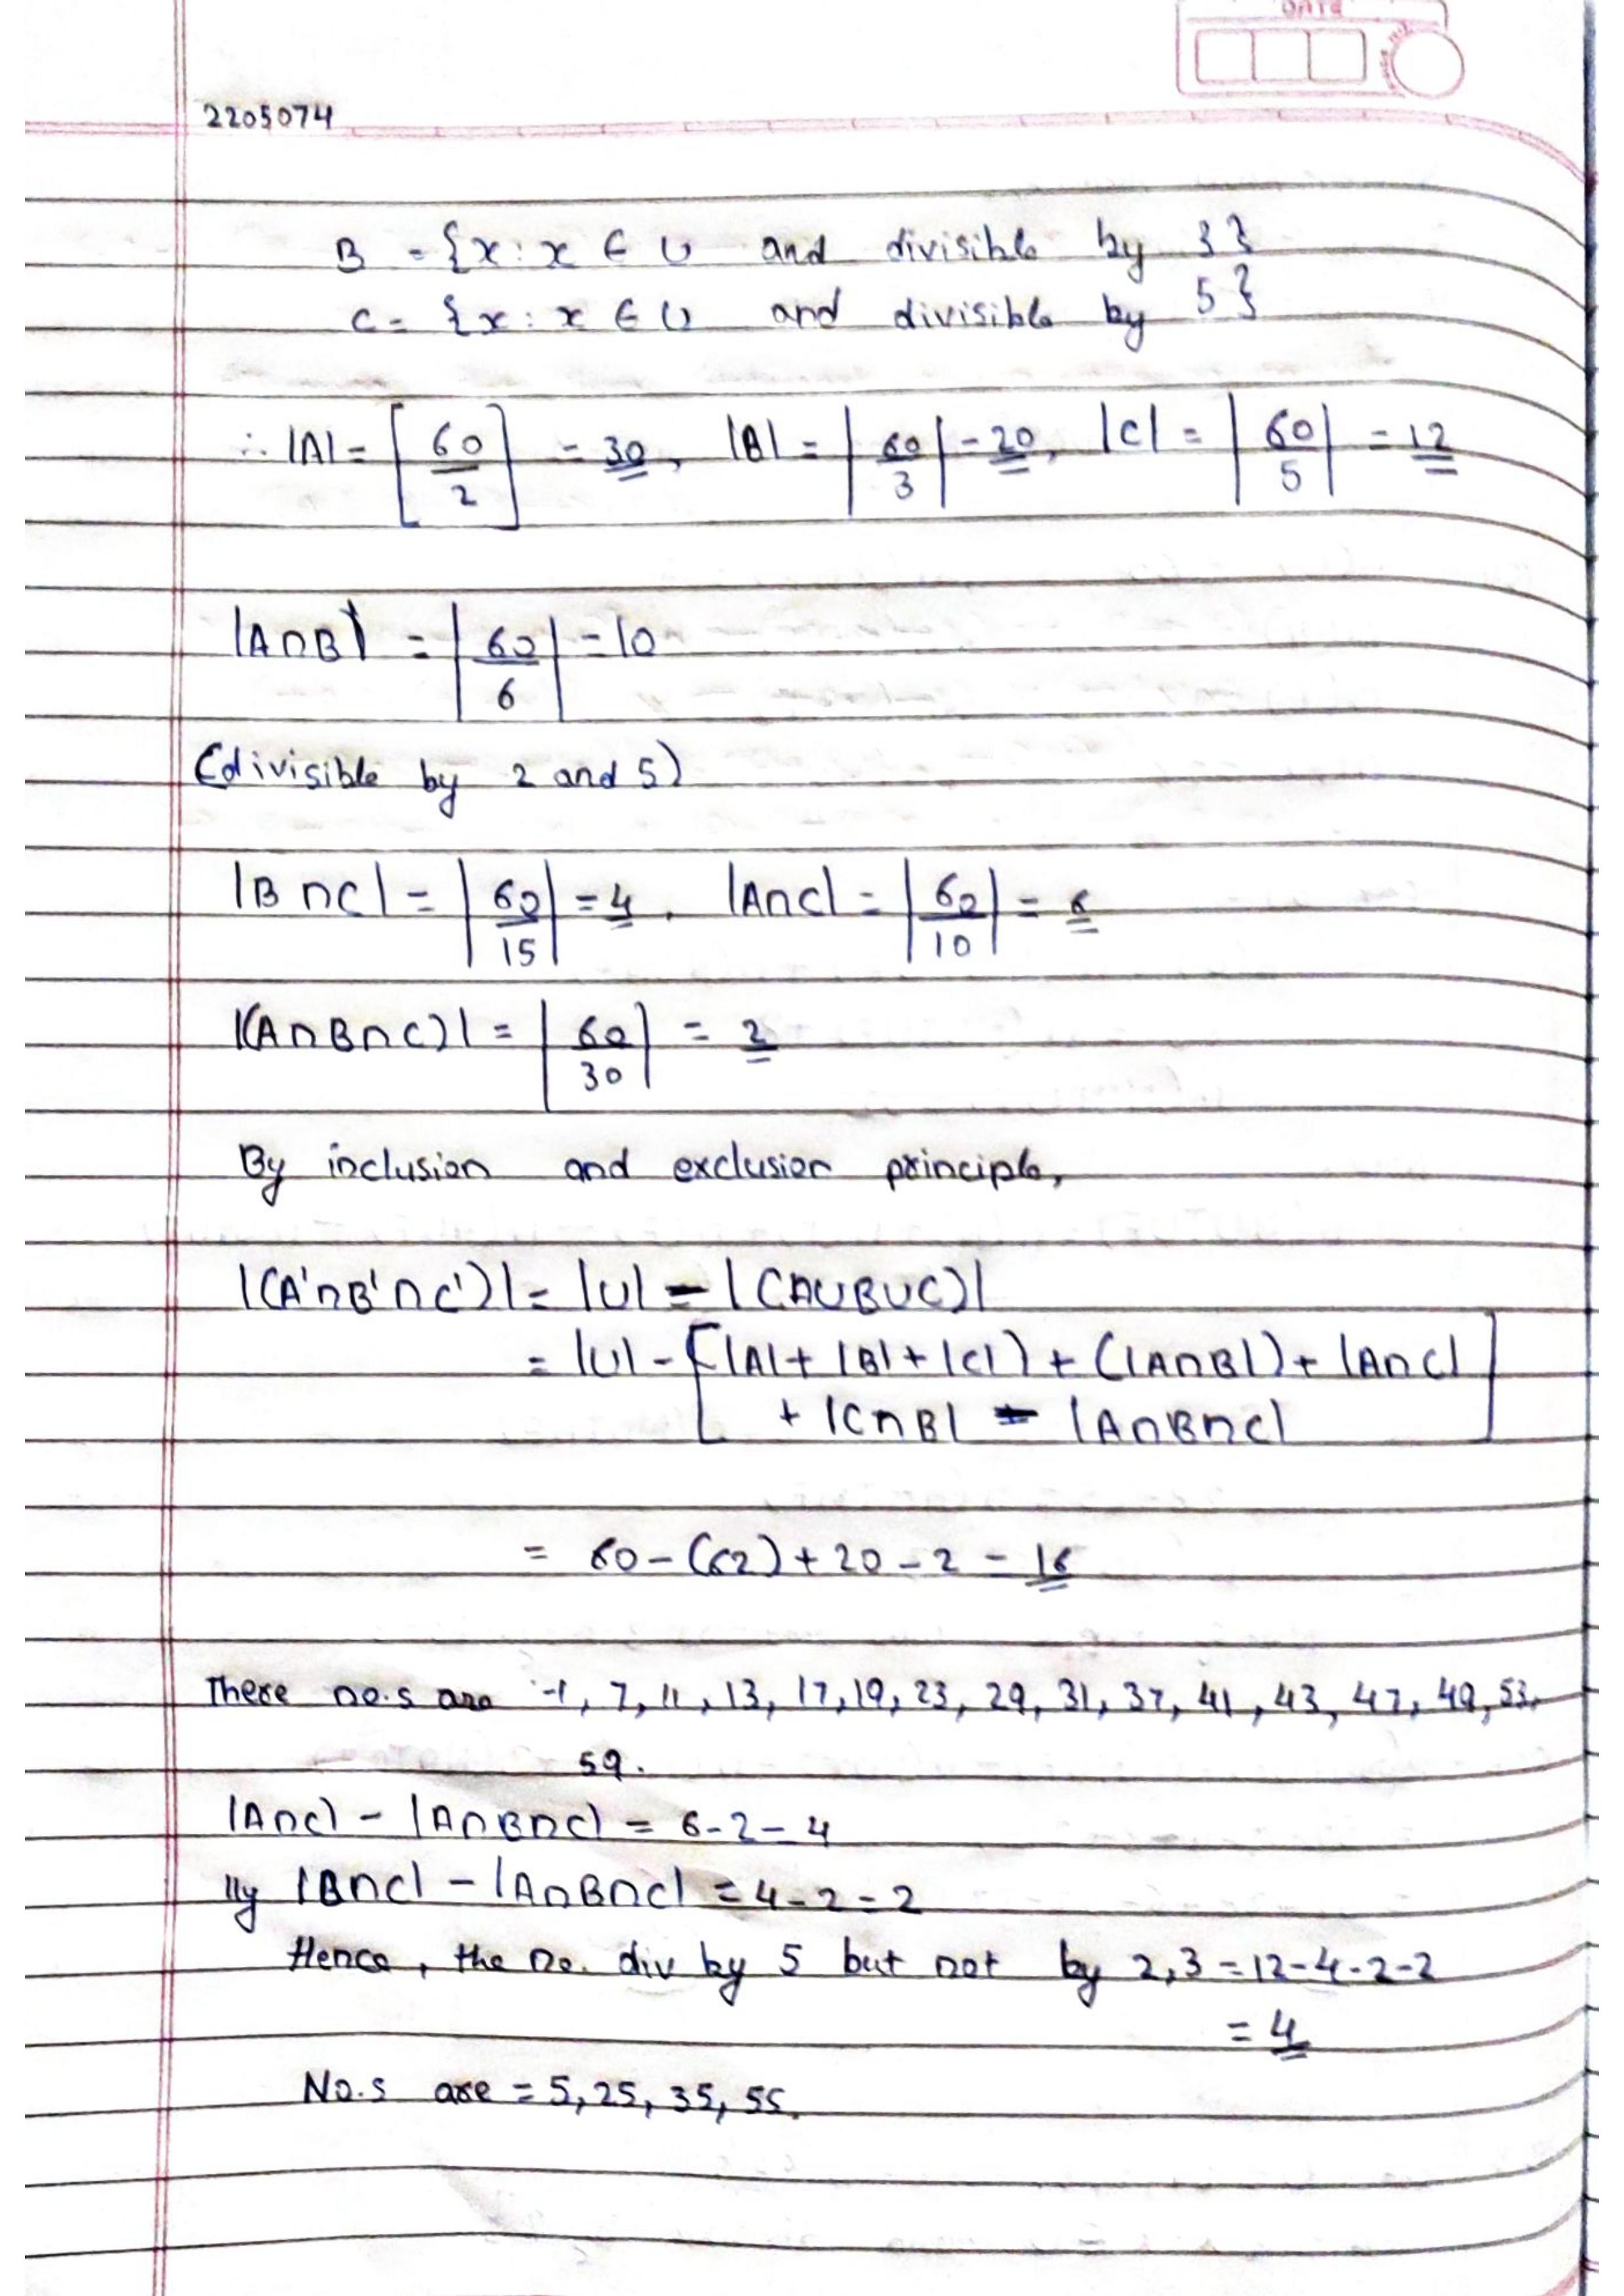 DATE
2205074
B = {x : x ∈ U and divisible by 3}
C = {x : x ∈ U and divisible by 5}
∴ |A| = [60/2] = 30, |B| = |60/3| = 20, |C| = |60/5| = 12
|A∩B| = |60/6| = 10
(divisible by 2 and 5)
|B∩C| = |60/15| = 4, |A∩C| = |60/10| = 6
|(A∩B∩C)| = |60/30| = 2
By inclusion and exclusion principle,
|(A'∩B'∩C')| = |U| - |(A∪B∪C)|
= |U| - [|A| + |B| + |C|) + (|A∩B|) + |A∩C|
+ |C∩B| - |A∩B∩C|]
= 60 - (62) + 20 - 2 = 16
These no.s are -1, 7, 11, 13, 17, 19, 23, 29, 31, 37, 41, 43, 47, 49, 53,
59.
|A∩C| - |A∩B∩C| = 6 - 2 = 4
lly |B∩C| - |A∩B∩C| = 4 - 2 = 2
Hence, the no. div by 5 but not by 2, 3 = 12 - 4 - 2 - 2
= 4
No.s are = 5, 25, 35, 55.